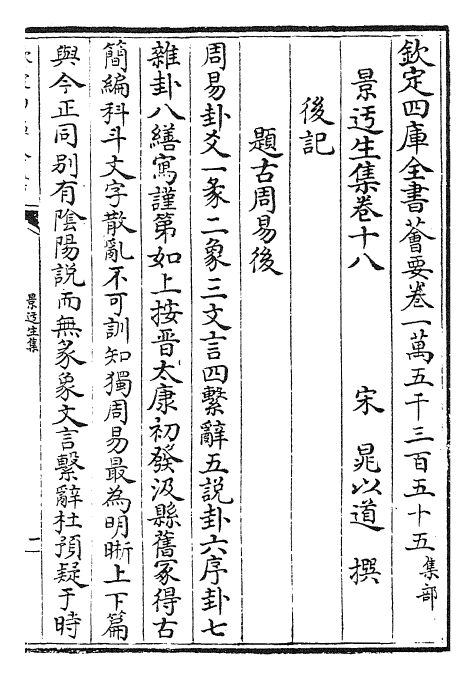 欽定四庫全書薈要卷一萬五千三百五十五集部
景迃生集卷十八　宋　晁以道　撰
後記
題古周易後
周易卦爻一彖二象三文言四繫辭五説卦六序卦七
雜卦八繕寫謹第如上按晉太康初發汲縣舊冢得古
簡編科斗文字散亂不可訓知獨周易最為明晰上下篇
與今正同别有陰陽説而無彖象文言繫辭杜預疑于時
景迃生集
一